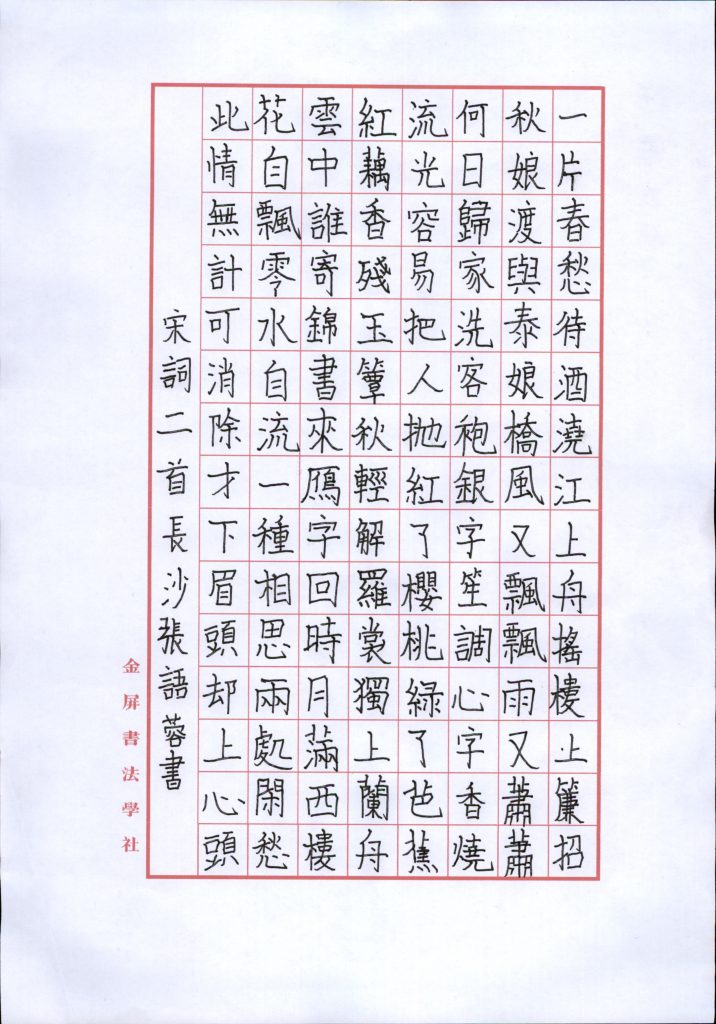 一片春愁待酒澆江上舟搖樓上簾招
秋娘渡與泰娘橋風又飄飄雨又蕭蕭
何日歸家洗客袍銀字笙調心字香燒
流光容易把人拋紅了櫻桃綠了芭蕉
紅藕香殘玉簟秋輕解羅裳獨上蘭舟
雲中誰寄錦書來鴈字回時月滿西樓
花自飄零水自流一種相思兩處閑愁
此情無計可消除才下眉頭却上心頭
宋詞二首長沙張語蓉書
金屏書法學社